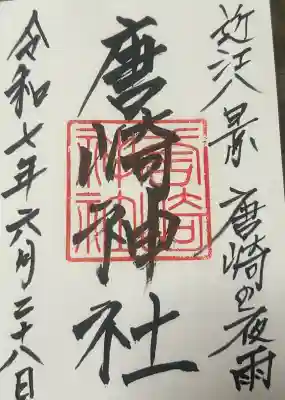 近江八景 唐崎の夜雨
唐崎神社
令和七年六月二十八日